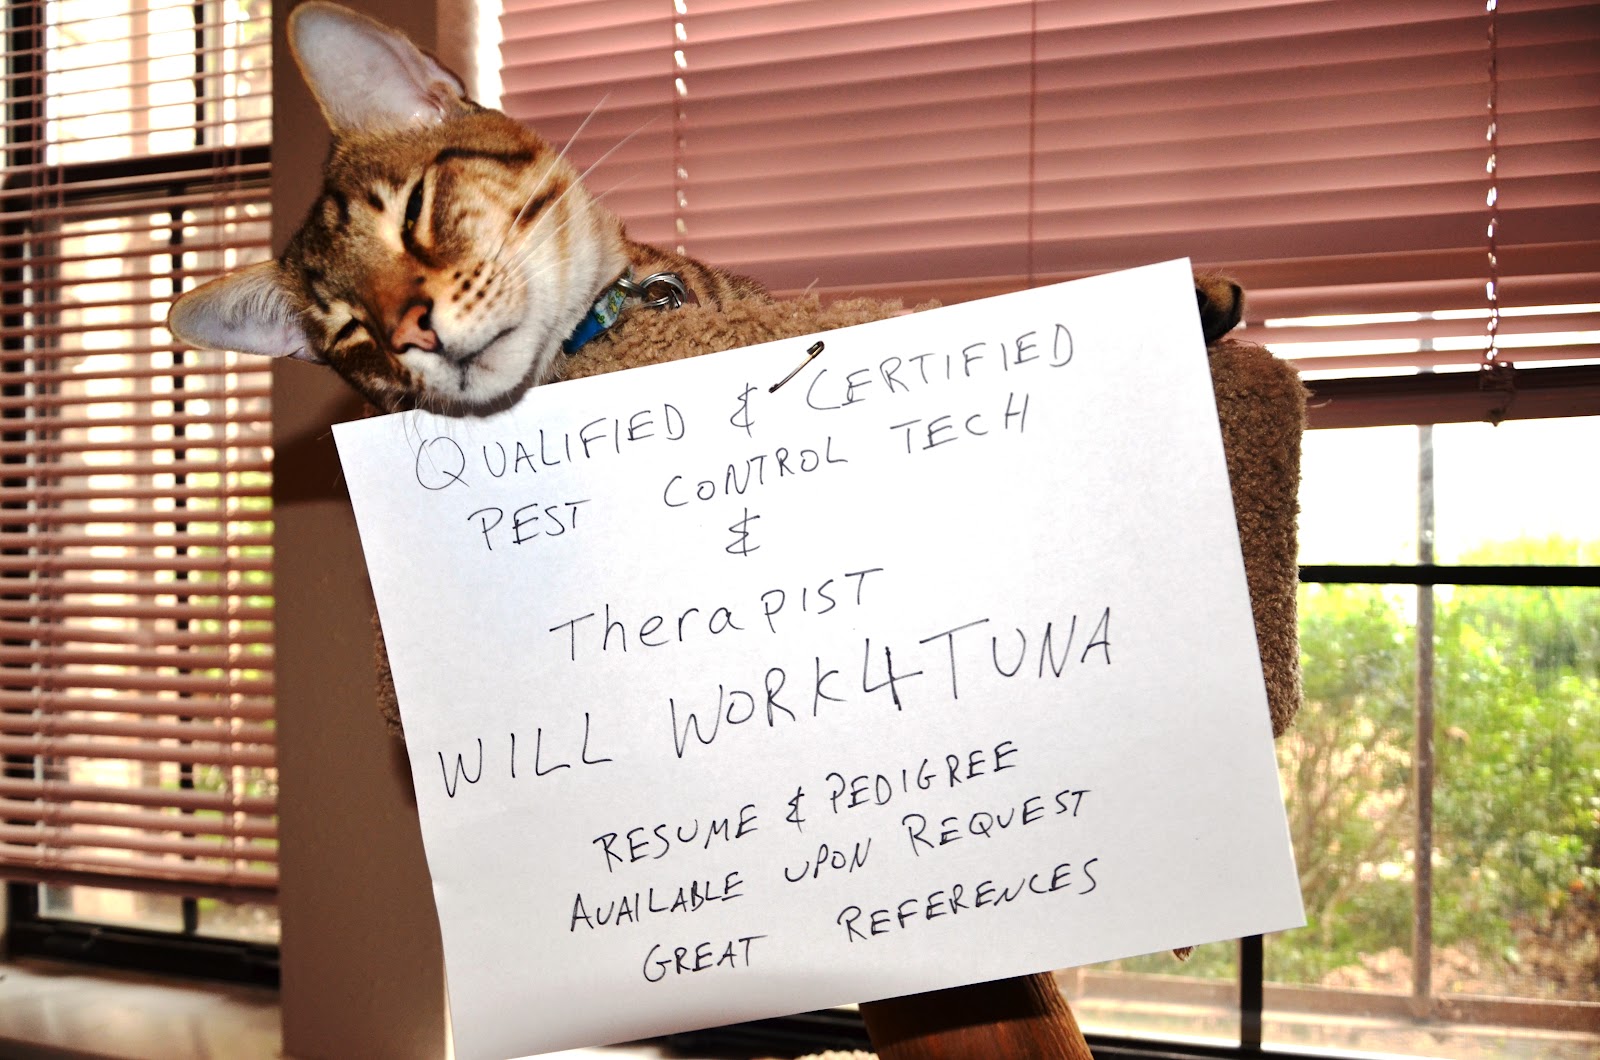 QUALIFIED & CERTIFIED
PEST CONTROL TECH
&
TherapIST
WILL WORK4TUNA
RESUME & PEDIGREE
AVAILABLE UPON REQUEST
GREAT REFERENCES